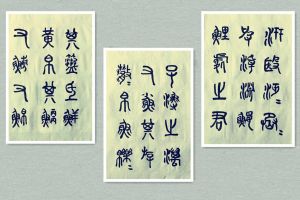 汧殹沔沔丞
皮淖淵鰋
鯉處之君
子漁之澫
又小魚其斿
帛魚
其氐鮮
黃帛其鯿
又又